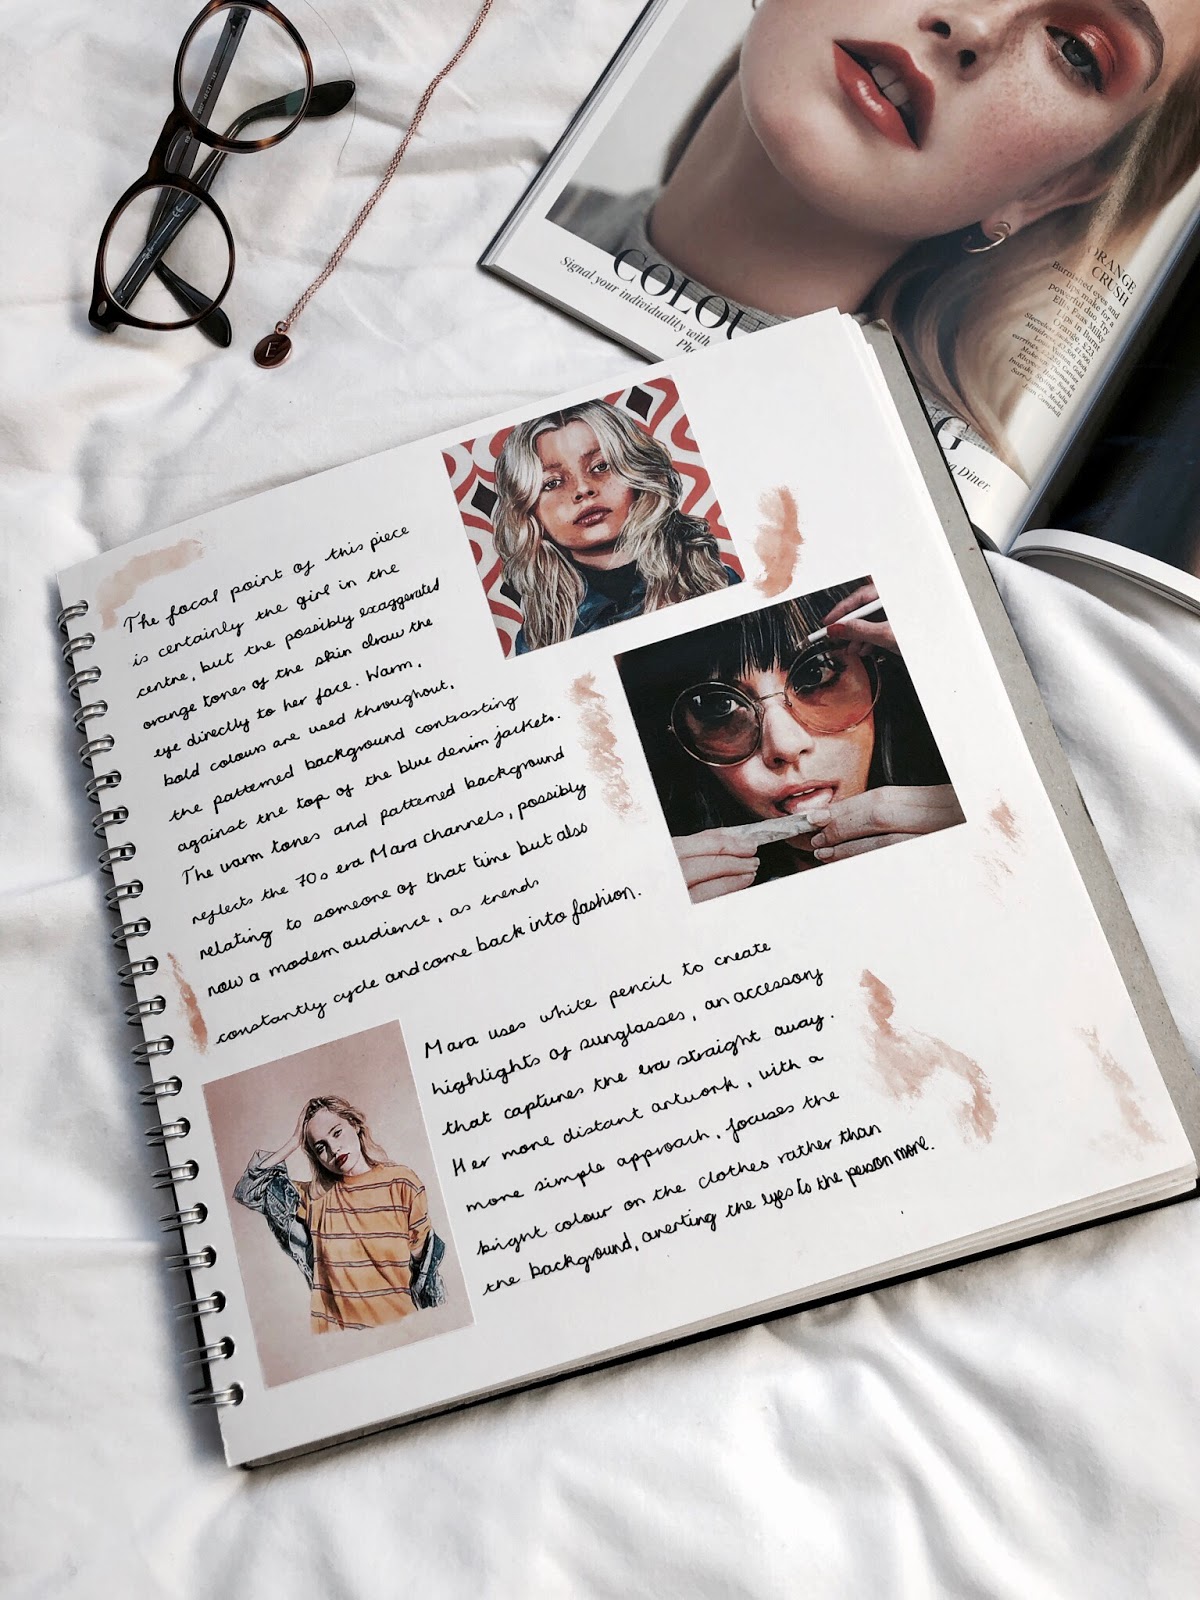 E
COLOU
Signal your individuality with
Pho
ORANGE
CRUSH
Burnished eyes and
lips make for a
powerful duo. Try
Ellis Faas Milky
Lips in Burnt
Orange, £23.
G
a Diner.
The focal point of this piece
is certainly the girl in the
centre, but the possibly exaggerated
orange tones of the skin draw the
eye directly to her face. Warm,
bold colours are used throughout,
the patterned background contrasting
against the top of the blue denim jacket.
The warm tones and patterned background
reflects the 70s era Mara channels, possibly
relating to someone of that time but also
now a modern audience, as trends
constantly cycle and come back into fashion.
Mara uses white pencil to create
highlights of sunglasses, an accessory
that captures the era straight away.
Her more distant artwork, with a
more simple approach, focuses the
bright colour on the clothes rather than
the background, averting the eyes to the person more.